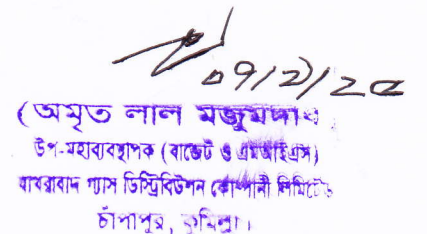 09/2/20
(অমৃত লাল মজুমদার)
উপ-মহাব্যবস্থাপক (বাজেট ও এমআইএস)
বাখরাবাদ গ্যাস ডিস্ট্রিবিউশন কোম্পানী লিমিটেড
চাঁপাপুর, কুমিল্লা।